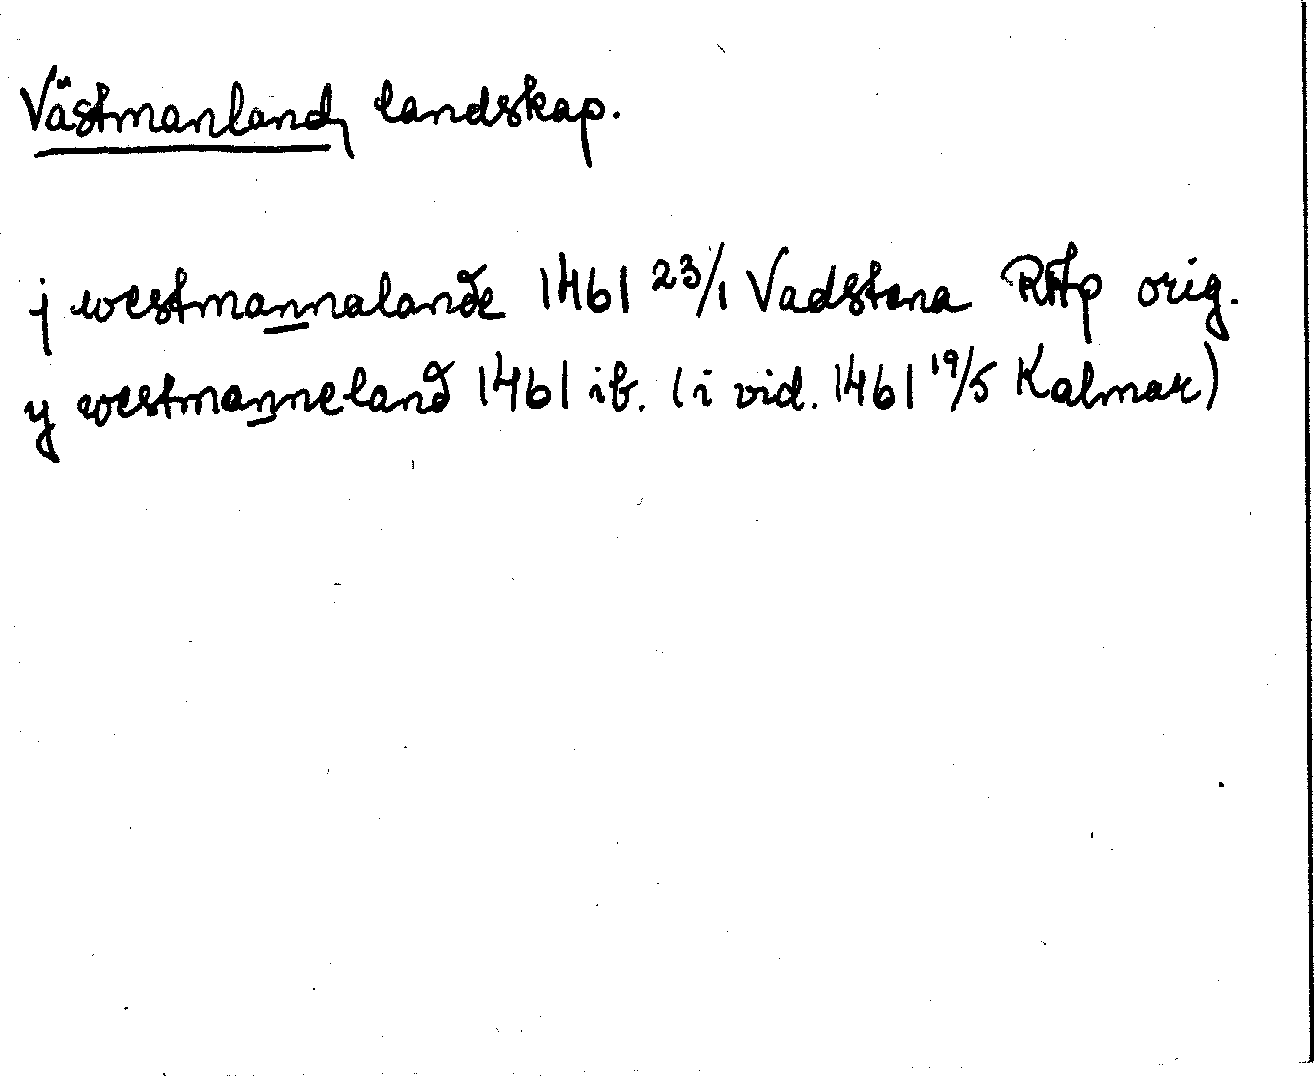 Västmanland, landskap.
j westmannalande 1461 23/1 Vadstena RAp orig.
y westmanneland 1461 ib. (i vid. 1461 19/5 Kalmar)